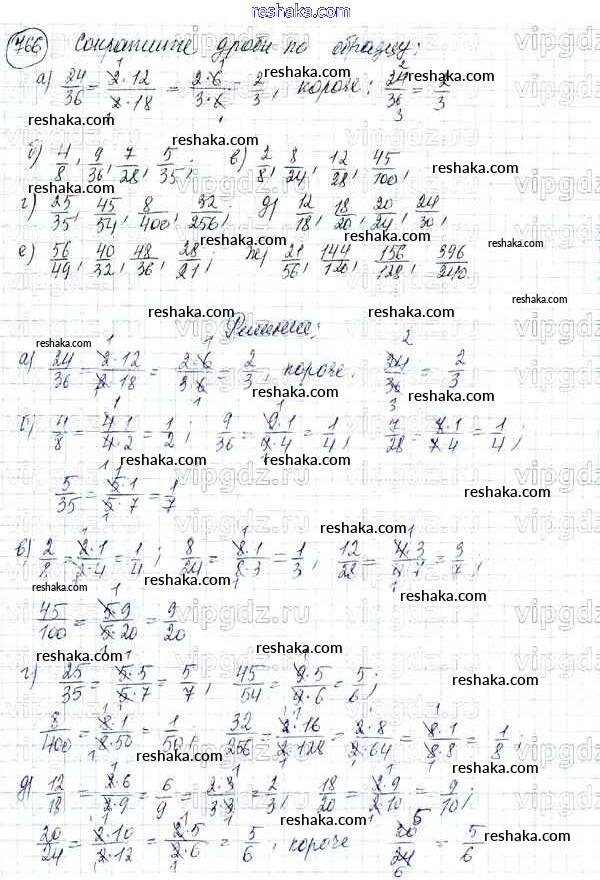 www.reshak.ru
766 Сократите дроби по образцу:
а) 24/36 = 2·12/2·18 = 2·6/3·6 = 2/3, короче: 24/36 = 2/3
б) 4/8, 9/36, 7/28, 5/35; в) 2/8, 8/24, 12/28, 45/100;
г) 25/35, 45/54, 8/400, 32/256; д) 12/18, 18/20, 20/24, 24/30;
е) 56/49, 40/32, 48/36, 28/21; ж) 21/56, 144/120, 156/128, 396/240.
Решение:
а) 24/36 = 2·12/2·18 = 2·6/3·6 = 2/3, короче: 24/36 = 2/3
б) 4/8 = 4·1/4·2 = 1/2; 9/36 = 9·1/9·4 = 1/4; 7/28 = 7·1/7·4 = 1/4;
5/35 = 5·1/5·7 = 1/7
в) 2/8 = 2·1/2·4 = 1/4; 8/24 = 8·1/8·3 = 1/3; 12/28 = 4·3/4·7 = 3/7;
45/100 = 5·9/5·20 = 9/20
г) 25/35 = 5·5/5·7 = 5/7; 45/54 = 9·5/9·6 = 5/6;
8/400 = 8·1/8·50 = 1/50; 32/256 = 2·16/2·128 = 2·8/2·64 = 8·1/8·8 = 1/8;
д) 12/18 = 2·6/2·9 = 6/9 = 2·3/3·3 = 2/3; 18/20 = 2·9/2·10 = 9/10;
20/24 = 2·10/2·12 = 2·5/2·6 = 5/6, короче 20/24 = 5/6